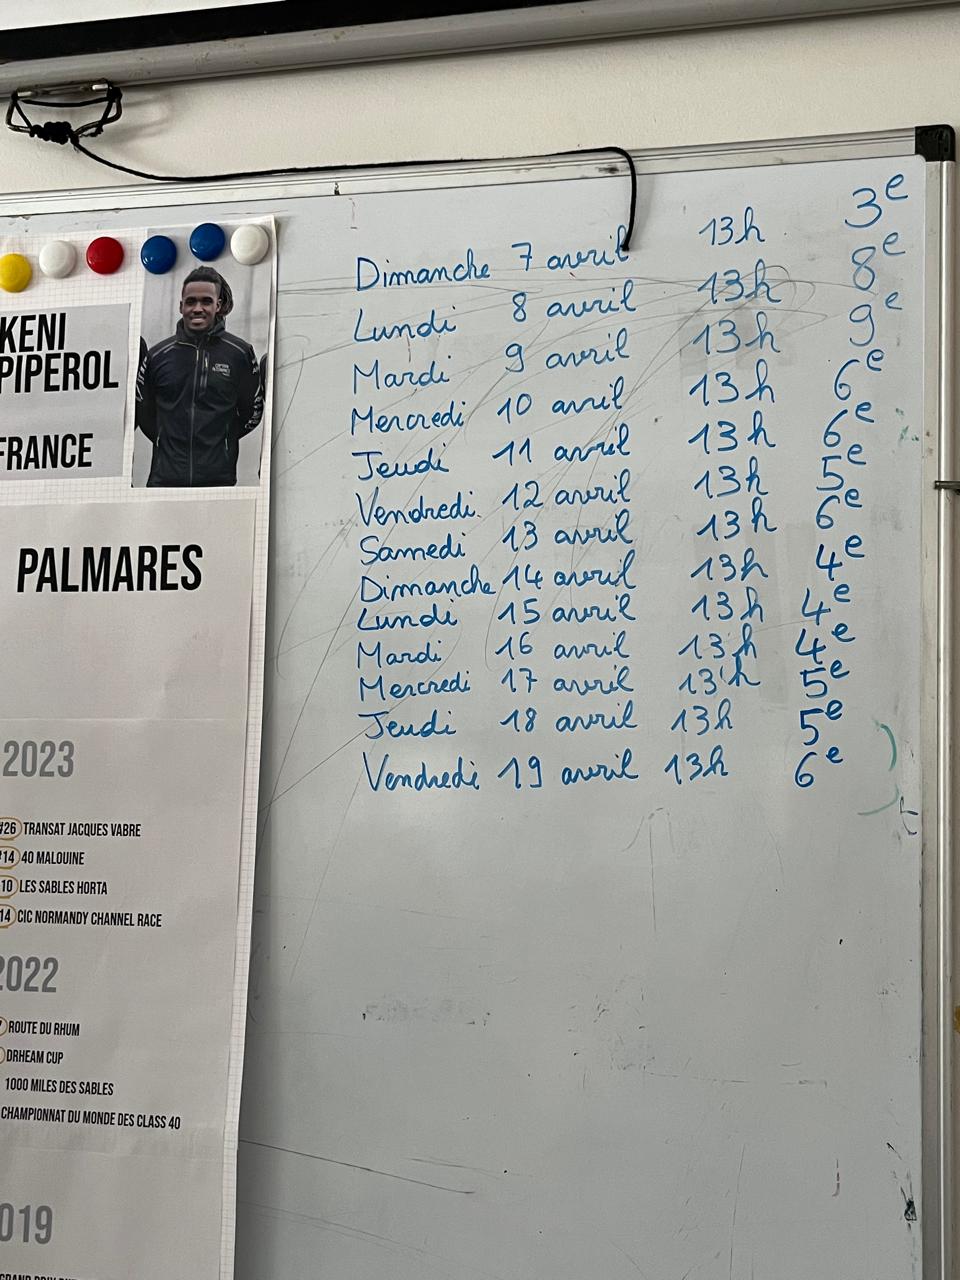 KENI
PIPEROL
FRANCE
PALMARES
2023
#26 TRANSAT JACQUES VABRE
#14 40 MALOUINE
10 LES SABLES HORTA
14 CIC NORMANDY CHANNEL RACE
2022
ROUTE DU RHUM
DRHEAM CUP
1000 MILES DES SABLES
CHAMPIONNAT DU MONDE DES CLASS 40
019
Dimanche 7 avril 13h 3e
Lundi 8 avril 13h 8e
Mardi 9 avril 13h 9e
Mercredi 10 avril 13h 6e
Jeudi 11 avril 13h 6e
Vendredi 12 avril 13h 5e
Samedi 13 avril 13h 6e
Dimanche 14 avril 13h 4e
Lundi 15 avril 13h 4e
Mardi 16 avril 13h 4e
Mercredi 17 avril 13h 5e
Jeudi 18 avril 13h 5e
Vendredi 19 avril 13h 6e